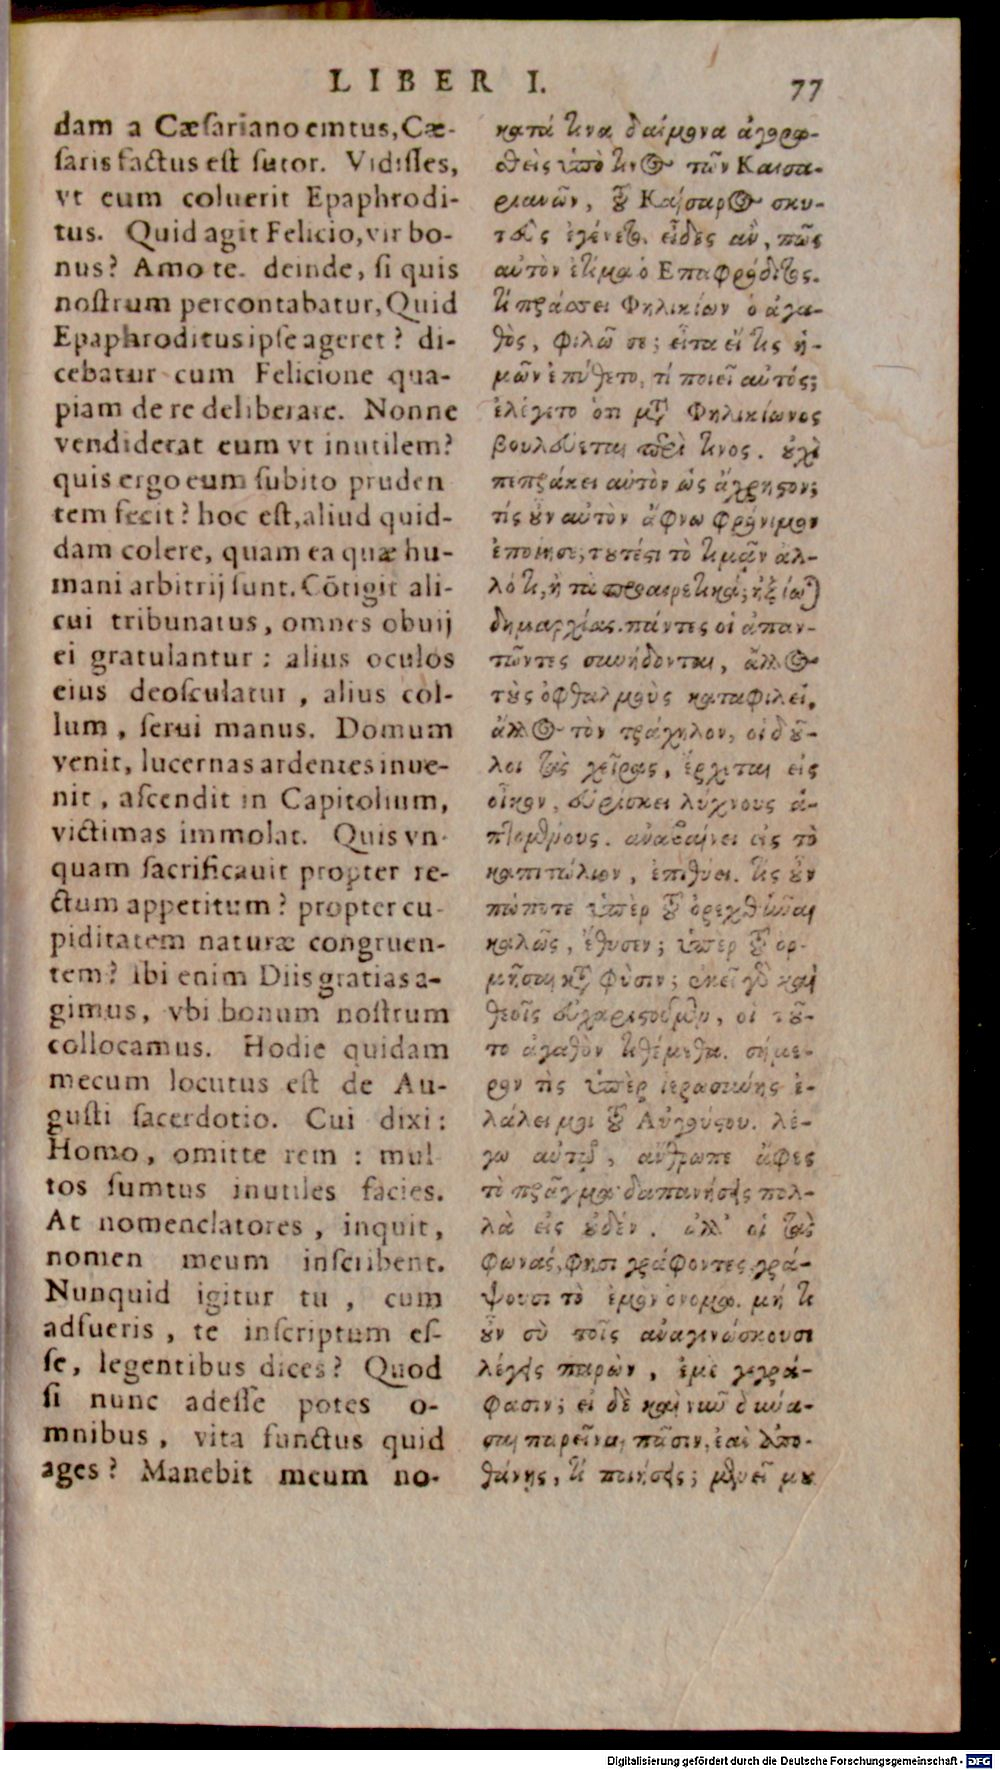 LIBER I. 77
dam a Cæſariano emtus, Cæ-
ſaris factus eſt ſutor. Vidiſſes,
vt eum coluerit Epaphrodi-
tus. Quid agit Felicio, vir bo-
nus? Amo te. deinde, ſi quis
noſtrum percontabatur, Quid
Epaphroditus ipſe ageret? di-
cebatur cum Felicione qua-
piam de re deliberare. Nonne
vendiderat eum vt inutilem?
quis ergo eum ſubito pruden
tem fecit? hoc eſt, aliud quid-
dam colere, quam ea quæ hu-
mani arbitrij ſunt. Cõtigit ali-
cui tribunatus, omnes obuij
ei gratulantur: alius oculos
eius deoſculatur, alius col-
lum, ſerui manus. Domum
venit, lucernas ardentes inue-
nit, aſcendit in Capitolium,
victimas immolat. Quis vn-
quam ſacrificauit propter re-
ctum appetitum? propter cu-
piditatem naturæ congruen-
tem? ibi enim Diis gratias a-
gimus, vbi bonum noſtrum
collocamus. Hodie quidam
mecum locutus eſt de Au-
guſti ſacerdotio. Cui dixi:
Homo, omitte rem: mul
tos ſumtus inutiles facies.
At nomenclatores, inquit,
nomen meum inſcribent.
Nunquid igitur tu, cum
adfueris, te inſcriptum eſ-
ſe, legentibus dices? Quod
ſi nunc adeſſe potes o-
mnibus, vita functus quid
ages? Manebit meum no-
κατά τινα δαίμονα ἀγορα-
σθεὶς ὑπὸ τινος τῶν Καισα-
ριανῶν, τοῦ Καίσαρος σκυ-
τεὺς ἐγένετο. εἶδες ἂν, πῶς
αὐτὸν ἐτίμα ὁ Επαφρόδιτος.
τί πράσσει Φηλικίων ὁ ἀγα-
θὸς, φιλῶ σε; εἶτα εἴ τις ἡ-
μῶν ἐπύθετο, τί ποιεῖ αὐτός;
ἐλέγετο ὅτι μετὰ Φηλικίωνος
βουλεύεται περὶ τινος. οὐχὶ
πεπράκει αὐτὸν ὡς ἄχρηστον;
τίς οὖν αὐτὸν ἄφνω φρόνιμον
ἐποίησε; τουτέστι τὸ τιμᾷν ἀλ-
λό τι, ἢ τὰ προαιρετικά; ἠξίωται
δημαρχίας. πάντες οἱ ἀπαν-
τῶντες συνήδονται, ἄλλος
τοὺς ὀφθαλμοὺς καταφιλεῖ,
ἄλλος τὸν τράχηλον, οἱ δοῦ-
λοι τὰς χεῖρας, ἔρχεται εἰς
οἶκον, εὑρίσκει λύχνους ἁ-
πτομένους. ἀναβαίνει εἰς τὸ
καπιτώλιον, ἐπιθύει. τίς οὖν
πώποτε ὑπὲρ τοῦ ὀρεχθῆναι
καλῶς, ἔθυσεν; ὑπὲρ τοῦ ὁρ-
μῆσαι κατὰ φύσιν; ἐκεῖ γὰρ καὶ
θεοῖς εὐχαριστοῦμεν, οἱ τοῦ-
το ἀγαθὸν τιθέμεθα. σήμε-
ρον τὶς ὑπὲρ ἱερωσύνης ἐ-
λάλει μοι τοῦ Αὐγούστου. λέ-
γω αὐτῷ, ἄνθρωπε ἄφες
τὸ πρᾶγμα· δαπανήσεις πολ-
λὰ εἰς οὐδέν. ἀλλ' οἱ τὰς
φωνάς, φησι γράφοντες, γρά-
ψουσι τὸ ἐμὸν ὄνομα. μή τι
οὖν σὺ τοῖς ἀναγινώσκουσι
λέγεις παρὼν, ἐμὲ γεγρά-
φασιν; εἰ δὲ καὶ νῦν δύνα-
σαι παρεῖναι πᾶσιν, ἐὰν ἀπο-
θάνῃς, τί ποιήσεις; μενεῖ μου
Digitalisierung gefördert durch die Deutsche Forschungsgemeinschaft - DFG